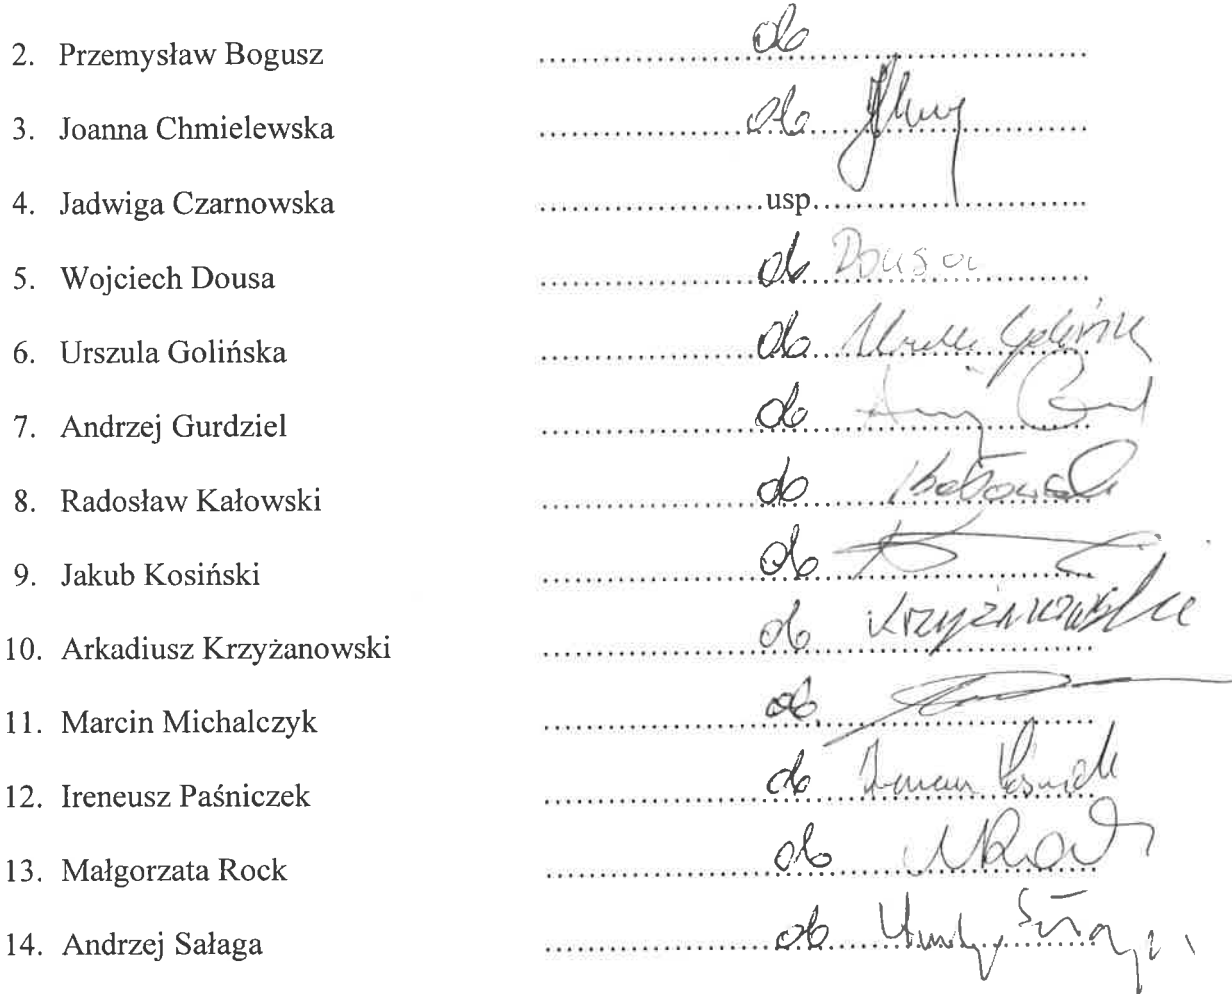 2. Przemysław Bogusz ........................ob........................
3. Joanna Chmielewska ........................ob........................
4. Jadwiga Czarnowska ........................usp........................
5. Wojciech Dousa ........................ob Dousa........................
6. Urszula Golińska ........................ob Urszula Golińska
7. Andrzej Gurdziel ........................ob........................
8. Radosław Kałowski ........................ob Kałowski
9. Jakub Kosiński ........................ob........................
10. Arkadiusz Krzyżanowski ........................ob Krzyżanowski
11. Marcin Michalczyk ........................ob........................
12. Ireneusz Paśniczek ........................ob........................
13. Małgorzata Rock ........................ob MRock
14. Andrzej Sałaga ........................ob........................